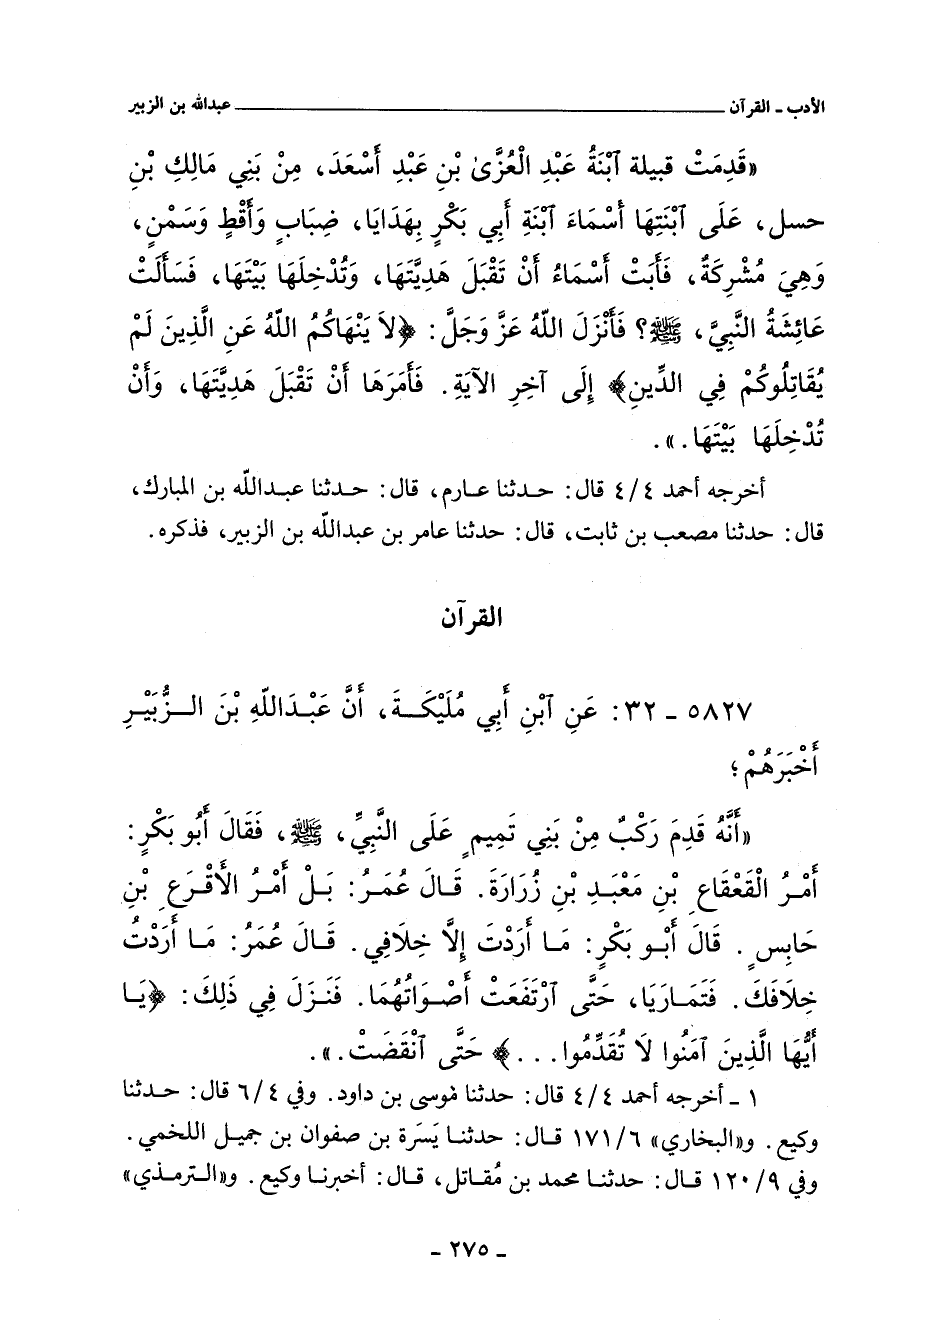 الأدب ـ القرآن ــــــــــــــــــــــــــــــــــــ عبدالله بن الزبير
«قَدِمَتْ قبيلة ٱبْنَةُ عَبْدِ الْعُزَّىٰ بْنِ عَبْدِ أَسْعَدَ، مِنْ بَنِي مَالِكِ بْنِ
حسل، عَلَى ٱبْنَتِهَا أَسْمَاءَ ٱبْنَةِ أَبِي بَكْرٍ بِهَدَايَا، ضِبَابٍ وَأَقْطٍ وَسَمْنٍ،
وَهِيَ مُشْرِكَةٌ، فَأَبَتْ أَسْمَاءُ أَنْ تَقْبَلَ هَدِيَّتَهَا، وَتُدْخِلَهَا بَيْتَهَا، فَسَأَلَتْ
عَائِشَةُ النَّبِيَّ، ﷺ؟ فَأَنْزَلَ اللهُ عَزَّ وَجَلَّ: ﴿لاَ يَنْهَاكُمُ اللهُ عَنِ الَّذِينَ لَمْ
يُقَاتِلُوكُمْ فِي الدِّينِ﴾ إِلَى آخِرِ الآيَةِ. فَأَمَرَهَا أَنْ تَقْبَلَ هَدِيَّتَهَا، وَأَنْ
تُدْخِلَهَا بَيْتَهَا.».
أخرجه أحمد ٤/٤ قال: حدثنا عارم، قال: حدثنا عبدالله بن المبارك،
قال: حدثنا مصعب بن ثابت، قال: حدثنا عامر بن عبدالله بن الزبير، فذكره.
القرآن
٥٨٢٧ ـ ٣٢: عَنِ ٱبْنِ أَبِي مُلَيْكَةَ، أَنَّ عَبْدَاللهِ بْنَ الزُّبَيْرِ
أَخْبَرَهُمْ؛
«أَنَّهُ قَدِمَ رَكْبٌ مِنْ بَنِي تَمِيمٍ عَلَى النَّبِيِّ، ﷺ، فَقَالَ أَبُو بَكْرٍ:
أَمْرُ الْقَعْقَاعِ بْنِ مَعْبَدِ بْنِ زُرَارَةَ. قَالَ عُمَرُ: بَلْ أَمْرُ الأَقْرَعِ بْنِ
حَابِسٍ. قَالَ أَبُو بَكْرٍ: مَا أَرَدْتَ إِلَّا خِلَافِي. قَالَ عُمَرُ: مَا أَرَدْتُ
خِلَافَكَ. فَتَمَارَيَا، حَتَّى ٱرْتَفَعَتْ أَصْوَاتُهُمَا. فَنَزَلَ فِي ذَلِكَ: ﴿يَا
أَيُّهَا الَّذِينَ آمَنُوا لَا تُقَدِّمُوا...﴾ حَتَّى ٱنْقَضَتْ.».
١ ـ أخرجه أحمد ٤/٤ قال: حدثنا مُوسى بن داود. وفي ٦/٤ قال: حدثنا
وكيع. و«البخاري» ١٧١/٦ قال: حدثنا يَسَرَة بن صفوان بن جميل اللخمي.
وفي ١٢٠/٩ قال: حدثنا محمد بن مُقاتل، قال: أخبرنا وكيع. و«الترمذي»
ـ ٢٧٥ ـ